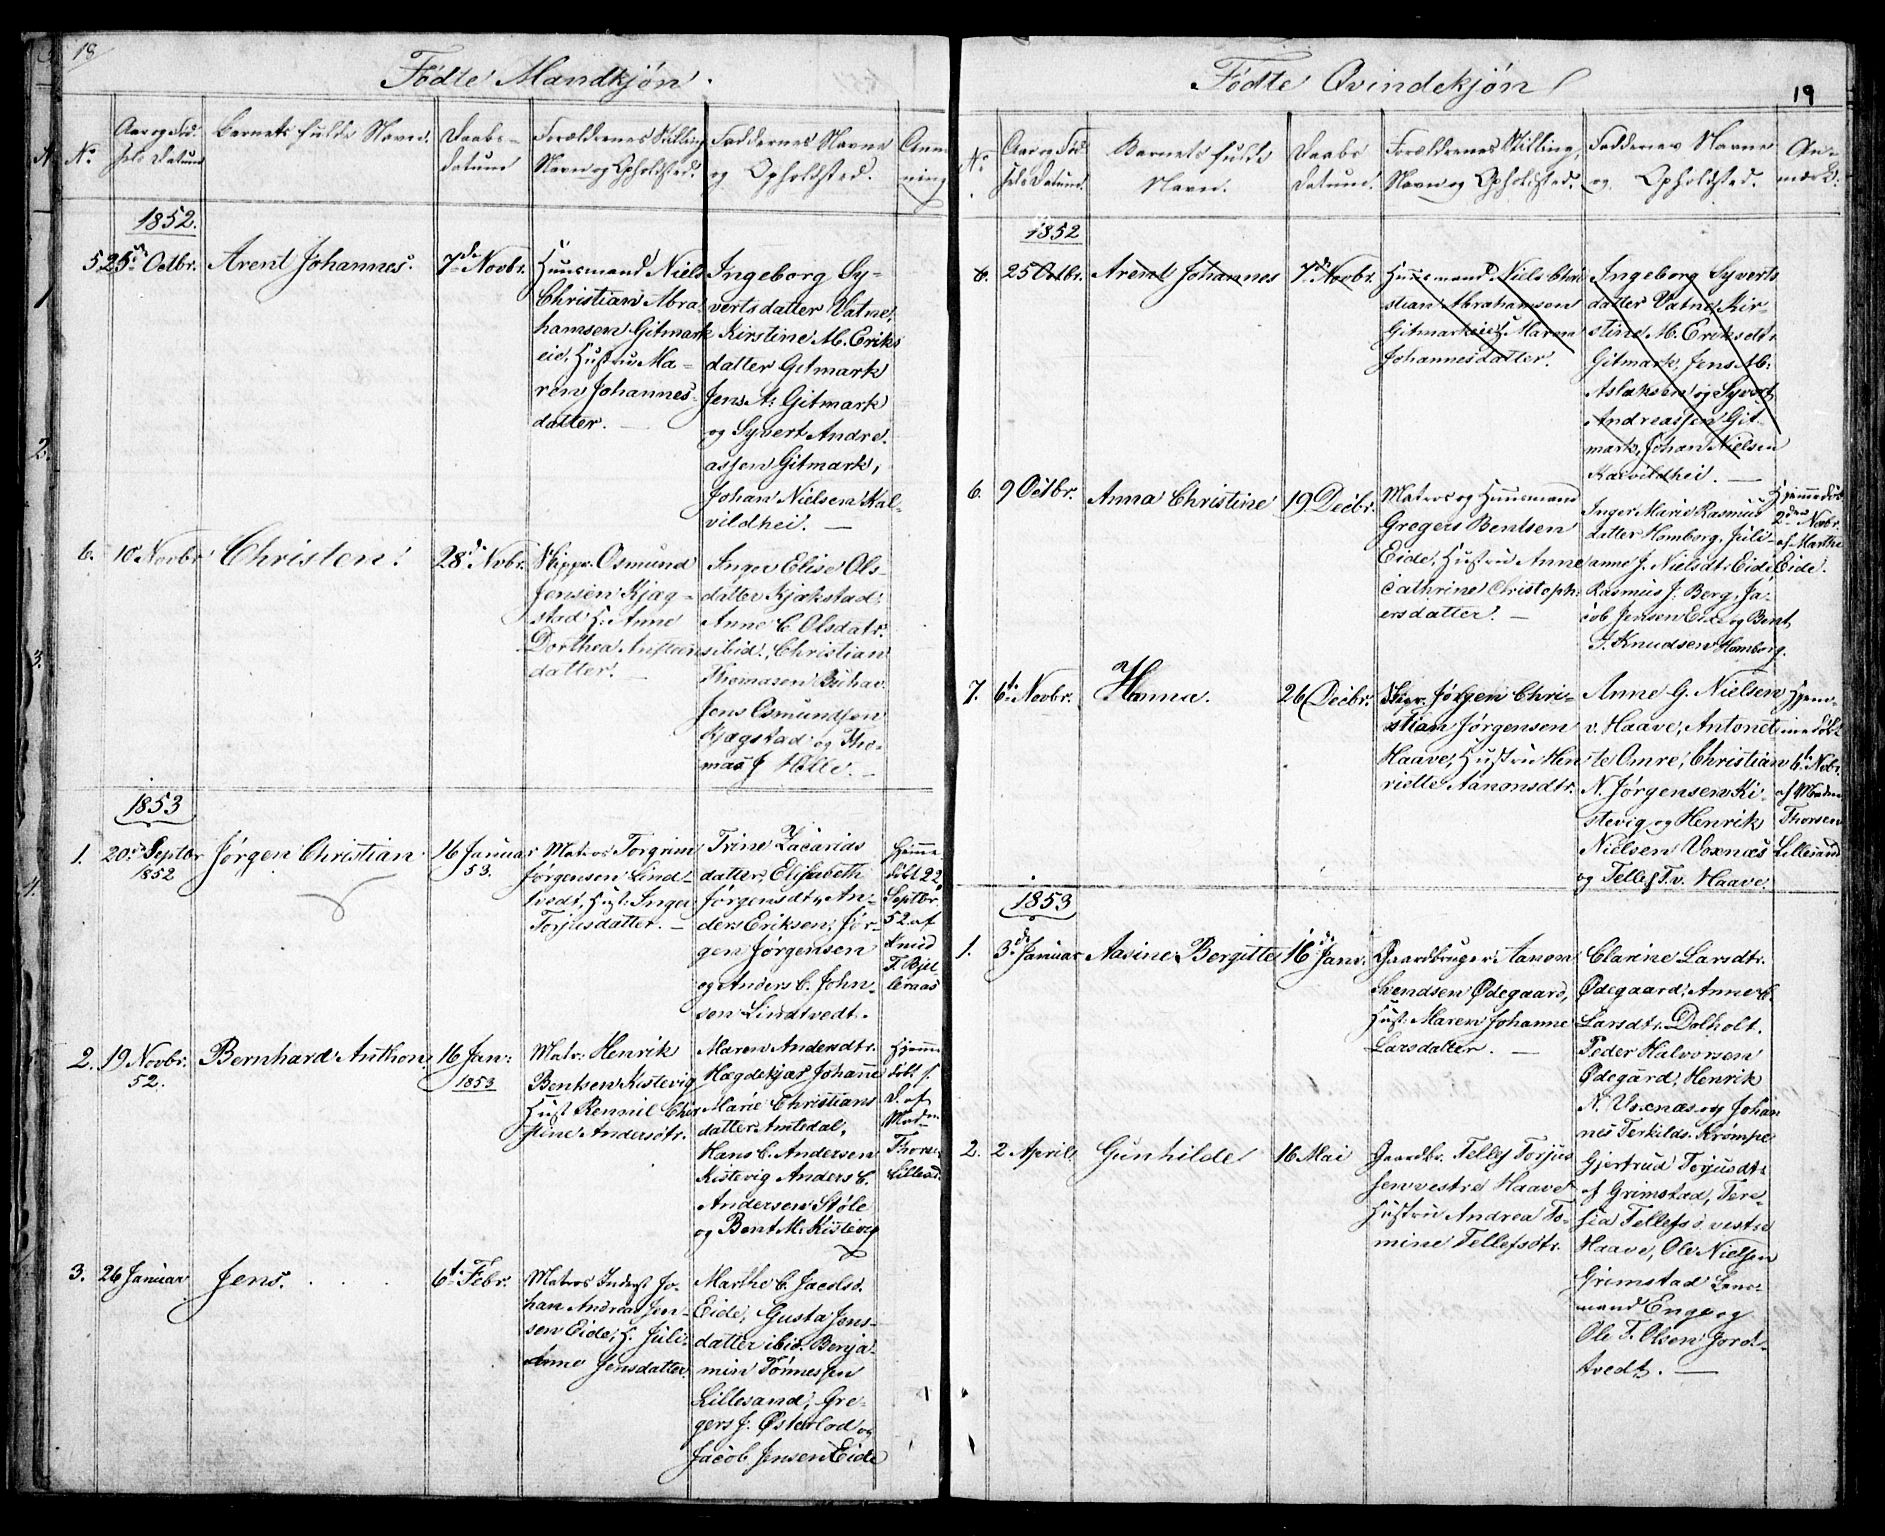 18
Fødte Mandkjøn.
No
Aar og Fød-
sels Datum
Barnets fulde Navn.
Daabs-
datum
Forældrenes Stilling
Navn og Opholdsted.
Faddernes Navne
og Opholdsted.
Anm
ning
1852.
5. 25de Octbr.
Arent Johannes.
7de Novbr.
Huusmand Niels
Christian Abra-
hamsen Gitmark
eie, Hustru Ma-
ren Johannes-
datter.
Ingeborg Sy-
vertsdatter Vatne,
Kirstine M. Eriks
datter Gitmark
Jens A: Gitmark
og Syvert Andre-
assen Gitmark,
Johan Nielsen Kal-
vildhei.
6. 10 Novbr
Christen.
28de Novbr.
Skippr. Osmund
Jensen Kjæg-
stad H. Anne
Dorthea Austens
datter.
Inger Elise Ols-
datter Kjækstad,
Anne C. Olsdatr.
ibid., Christian
Thomasen
Jens Osmundsen
Kjægstad og Tho-
mas J
1853
1. 20de Septbr
1852
Jørgen Christian
16 Januar
53.
Matros Torgrim
Jørgensen Lind-
tvedt, Hust. Inger
Torjusdatter.
Trine Zacarias
datter, Elisabeth
Jørgensdtr, An-
ders Eriksen, Jør-
gen Jørgensen
og Anders C. John-
sen Lindtvedt.
Hjemme
døbt 22
Septbr.
52 af
Knud
T. Bjel
leraas
2. 19 Novbr.
52.
Bernhard Anthon
16 Jan:
1853
Matr: Henrik
Bentsen Kistevig
Hust Rennil Chri
stine Andersdtr.
Maren Andersdtr.
Hægdekjær Johanne
Marie Christians
datter Amtedal,
Hans C. Andersen
Kistevig Anders C.
Andersen Støle
og Bent M. Kistevig
Hjemme
døbt s.
D. af
Mad.
Thorsen
Lillesd.
3. 26 Januar
Jens.
6te Febr.
Matros Inderst Jo-
han Andreas Jen-
sen Eide, H. Juli-
Anne Jensdatter
Marthe C. Jacobsd.
Eide, Gusta Jens-
datter ibid. Benja-
min Tønnessen
Lillesand, Gre-
gers J. Østerlod og
Jacob Jensen Eide
Fødte Qvindekjøn
19
No
Aar og Fød
sels Datum.
Barnets fulde
Navn.
Daabs
Datum.
Forældrenes Stilling,
Navn og Opholdsted.
Faddernes Navne
og Opholdsted.
An-
mærk:
1852
6. 25 Octbr.
Arent Johannes
7de Novbr.
Huusmand Niels Chri
stian Abrahamsen
Gitmarkeie H. Maren
Johannesdatter.
Ingeborg Syverts
datter Vatne, Kir-
stine M. Eriksdtr
Gitmark, Jens A:
Aslaksen og Syvert
Andreassen Git-
mark, Johan Nielsen
Kalvildhei.
6. 9 Octbr.
Anna Christine
19 Decbr.
Matros og Huusmand
Gregers Bentsen
Eide, Hustru Anne
Cathrine Christoph-
ersdatter.
Inger Marie Rasmus
datter Homborg, Juli-
anne J. Nielsdtr Eide,
Rasmus J. Berg, Ja-
cob Jensen Eide og Bent
J. Knudsen Homborg.
Hjemmedøb
2den Novbr.
af Marthe
Eide.
7. 6te Novbr.
Hanna.
26 Decbr.
Skipr. Jørgen Chri-
stian Jørgensen
Haave, Hustru Hen
rielle Aanonsdtr.
Anne G. Nielsen
v. Haave, Antonet
te Omre, Christian
N. Jørgensen Ki-
stevig og Henrik
Nielsen Voxnæs
og Tellef T. v. Haave
Hjem-
me døbt
6te Nobr.
af Madm
Thorsen
Lillesand
1853
1. 3de Januar
Aasine Bergitte
16de Janr.
Gaardbruger Aanon
Svendsen Ødegaard,
Hust. Maren Johanne
Larsdatter.
Clarine Larsdtr.
Ødegaard, Anne C.
Larsdtr. Dolholt.
Peder Halvorsen
Ødegård, Henrik
N. Voxnæs og Johan
nes Terkilds. Krømpe
2. 2 April
Gunhilde
16 Mai
Gaardbr. Tellef Torjus
sen vestre Haave
Hustru Andrea To-
mine Tellefsdtr.
Gjertrud Torjusdtr
af Grimstad, Tere-
sia Tellefsd vestre
Haave, Ole Nielsen
Grimstad Lens-
mand Enge og
Ole T. Olsen Jord-
tvedt.